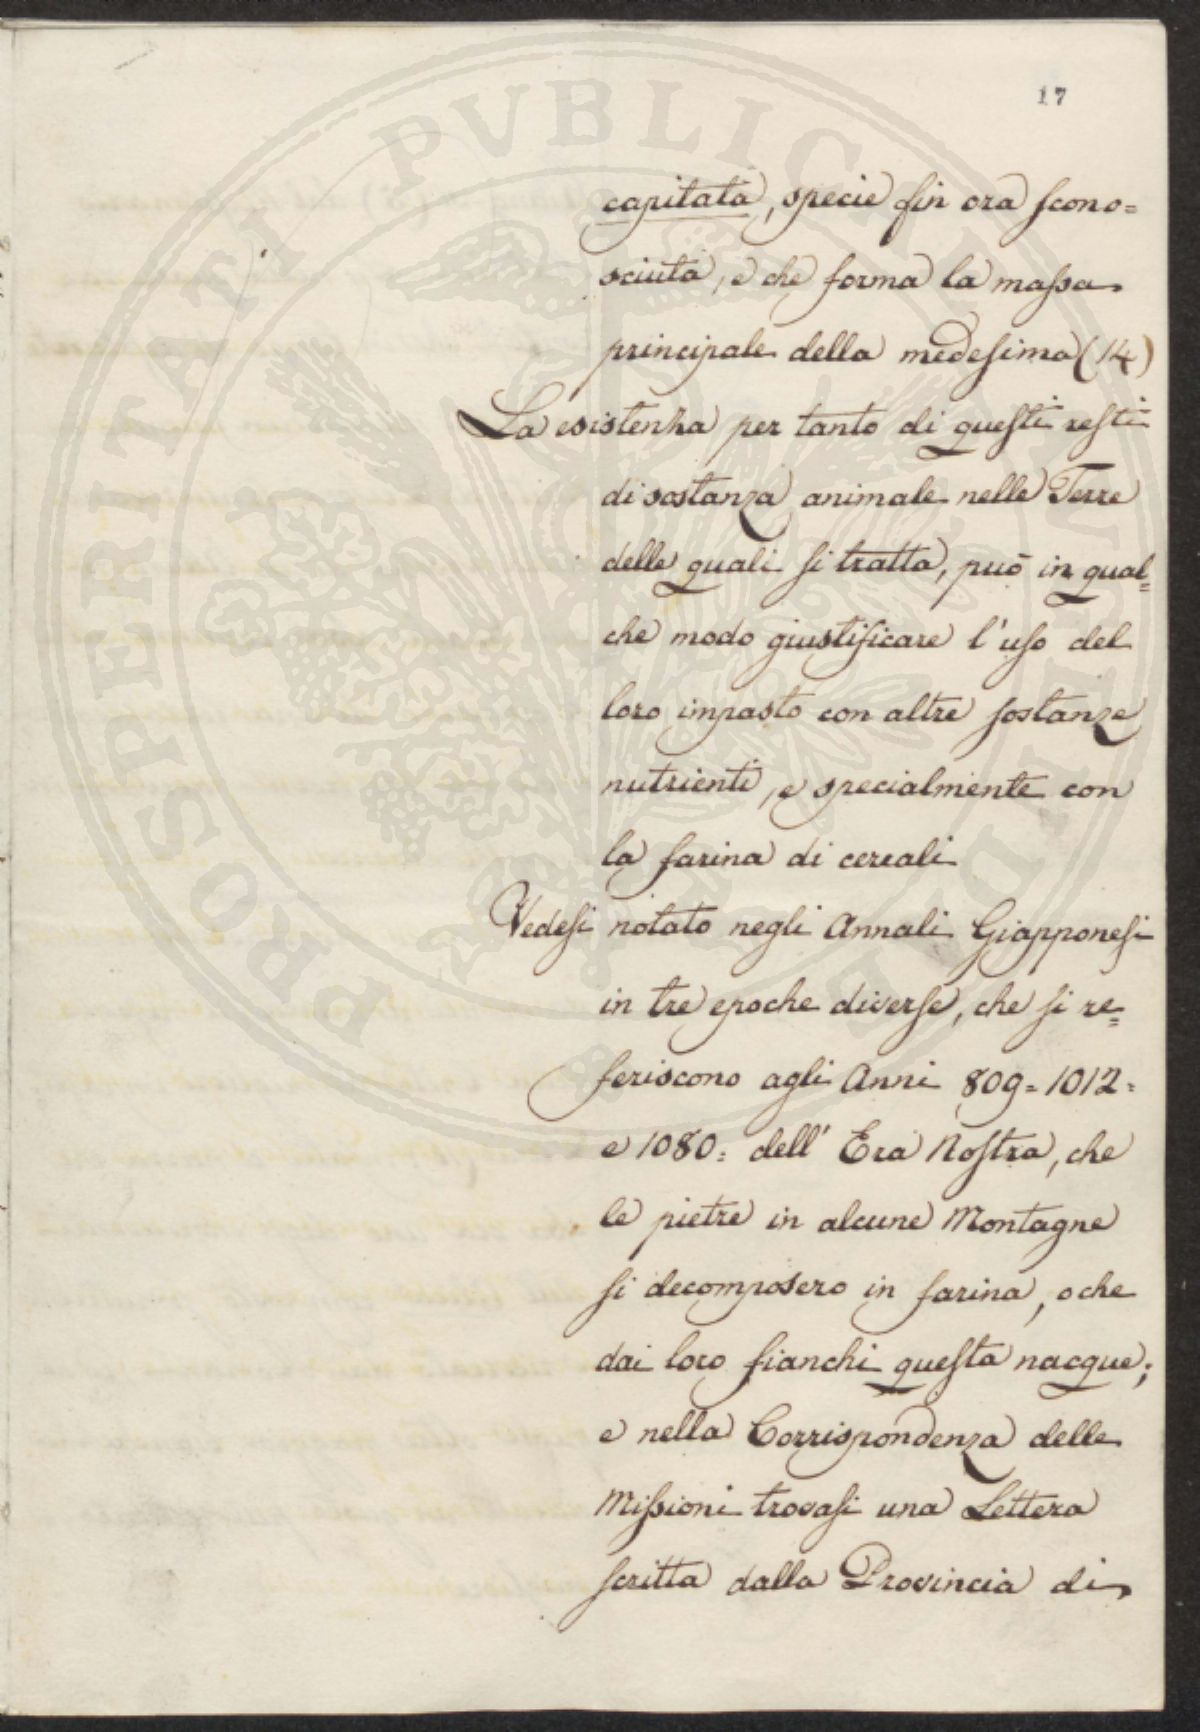 17
PROSPERITATI PVBLICAE
capitata, specie fin ora scono=
sciuta, e che forma la massa
principale della medesima (14)
La esistenza per tanto di questi resti
di sostanza animale nelle Terre
delle quali si tratta, può in qual=
che modo giustificare l'uso del
loro impasto con altre sostanze
nutrienti, e specialmente con
la farina di cereali
Vedesi notato negli Annali Giapponesi
in tre epoche diverse, che si re=
feriscono agli Anni 809=1012=
e 1080= dell' Era Nostra, che
le pietre in alcune Montagne
si decomposero in farina, o che
dai loro fianchi questa nacque;
e nella Corrispondenza delle
Missioni trovasi una Lettera
scritta dalla Provincia di